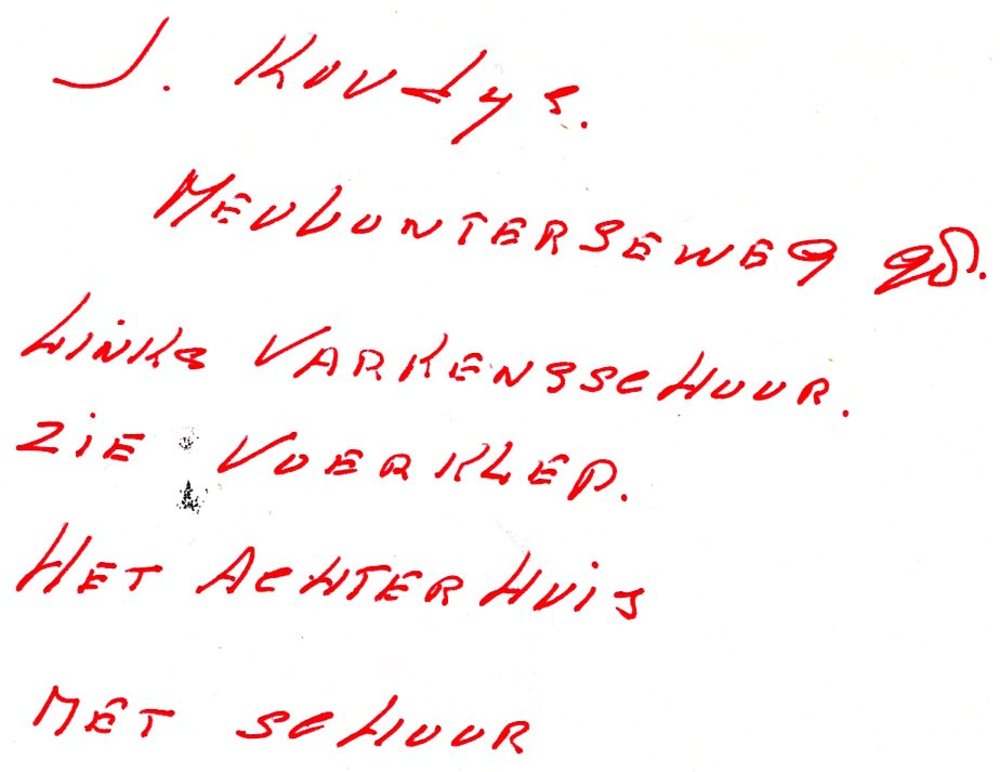 J. Koudys.
MEULUNTERSEWEG 98.
LINKS VARKENSSCHUUR.
ZIE VOERKLEP.
HET ACHTERHUIS
MET SCHUUR